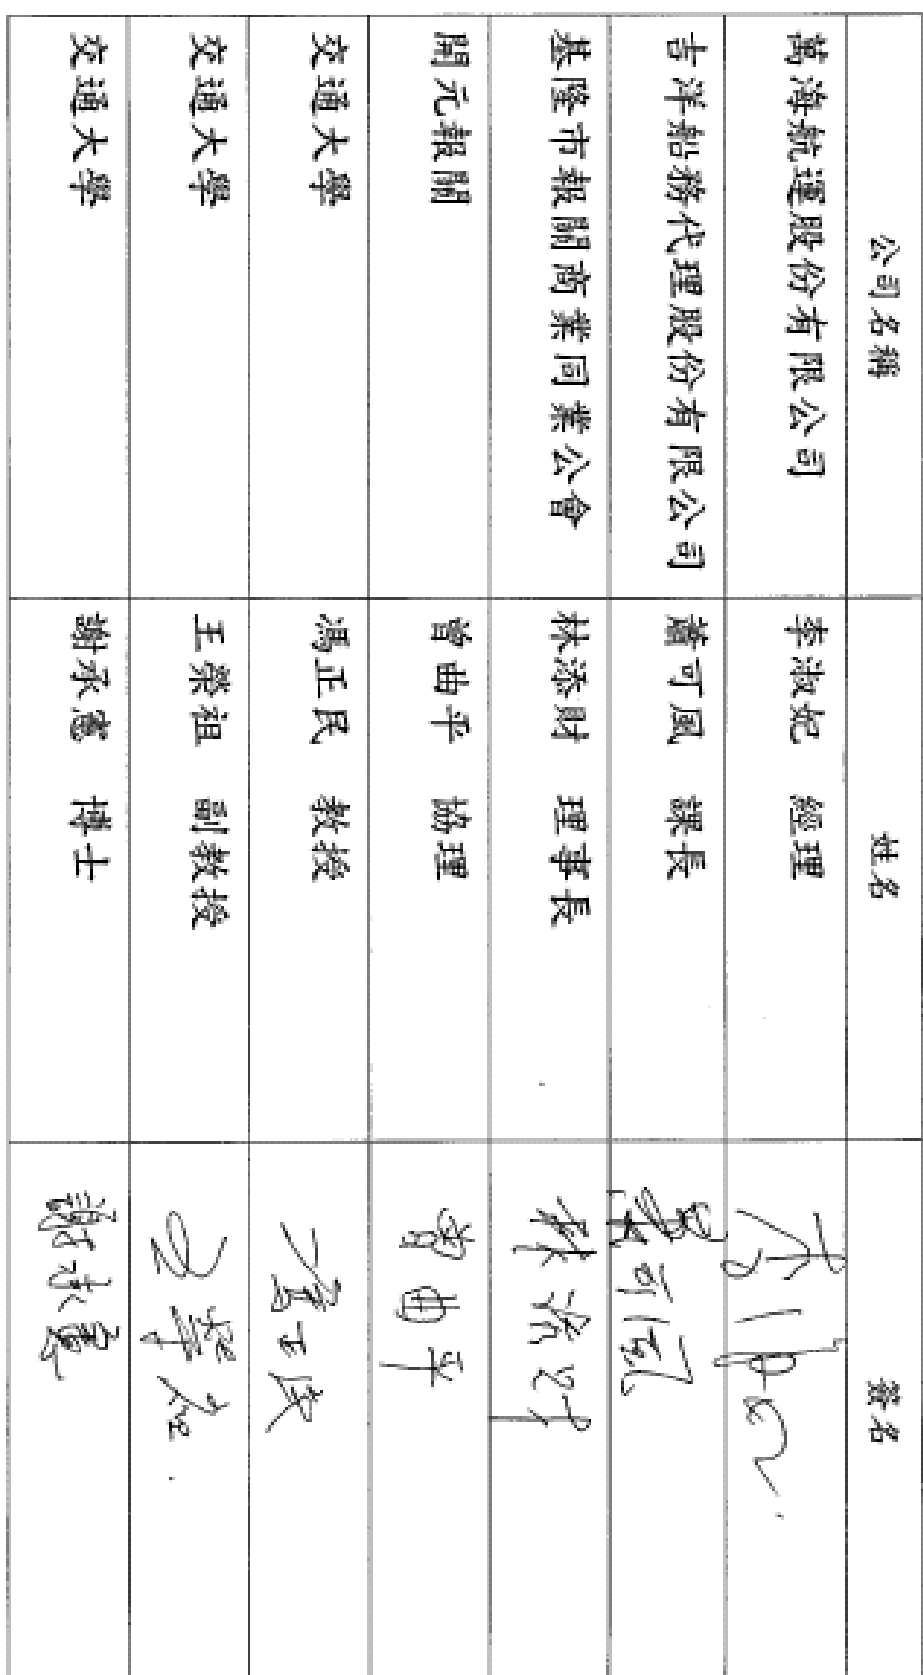 公司名稱 姓名 簽名
萬海航運股份有限公司 李淑妃 經理
吉洋船務代理股份有限公司 蕭可風 課長 蕭可風
基隆市報關商業同業公會 林添財 理事長 林添財
開元報關 曾曲平 協理 曾曲平
交通大學 馮正民 教授 馮正民
交通大學 王榮祖 副教授
交通大學 謝承憲 博士 謝承憲